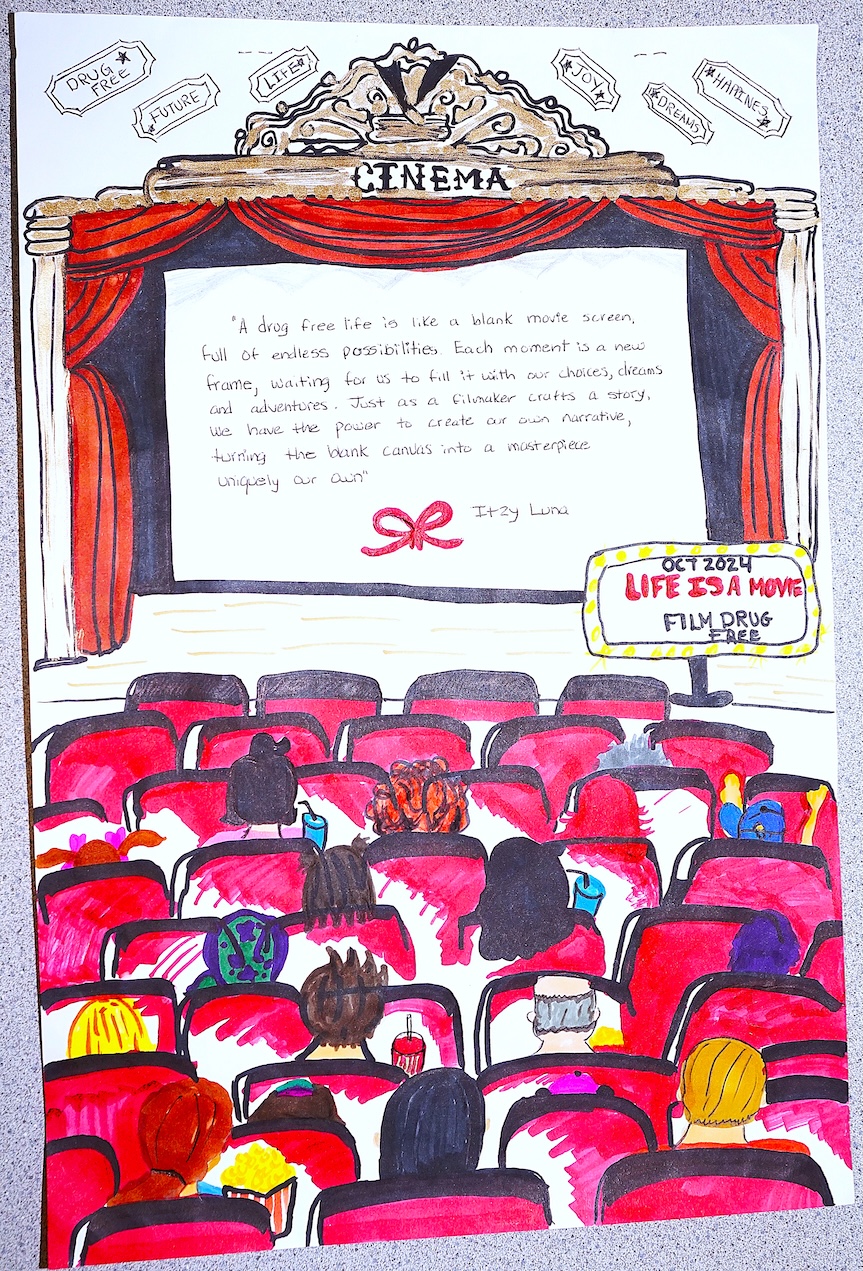 DRUG
FREE
FUTURE
LIFE
JOY
DREAMS
HAPPINES
CINEMA
"A drug free life is like a blank movie screen,
full of endless possibilities. Each moment is a new
frame, waiting for us to fill it with our choices, dreams
and adventures. Just as a filmaker crafts a story,
we have the power to create our own narrative,
turning the blank canvas into a masterpiece
uniquely our own"
Itzy Luna
OCT 2024
LIFE IS A MOVIE
FILM DRUG
FREE